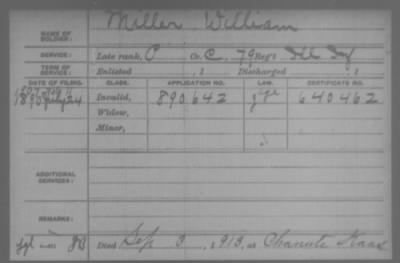 NAME OF SOLDIER: Miller William
SERVICE: Late rank, P Co. C, 79 Reg't Ill Inf
TERM OF SERVICE: Enlisted , 1 Discharged , 1
DATE OF FILING. CLASS. APPLICATION NO. LAW. CERTIFICATE NO.
1890 July 24 Invalid, 890642 640462
Widow,
Minor,
ADDITIONAL SERVICES:
REMARKS:
Died Sep 3, 1913, at Chanute Kans